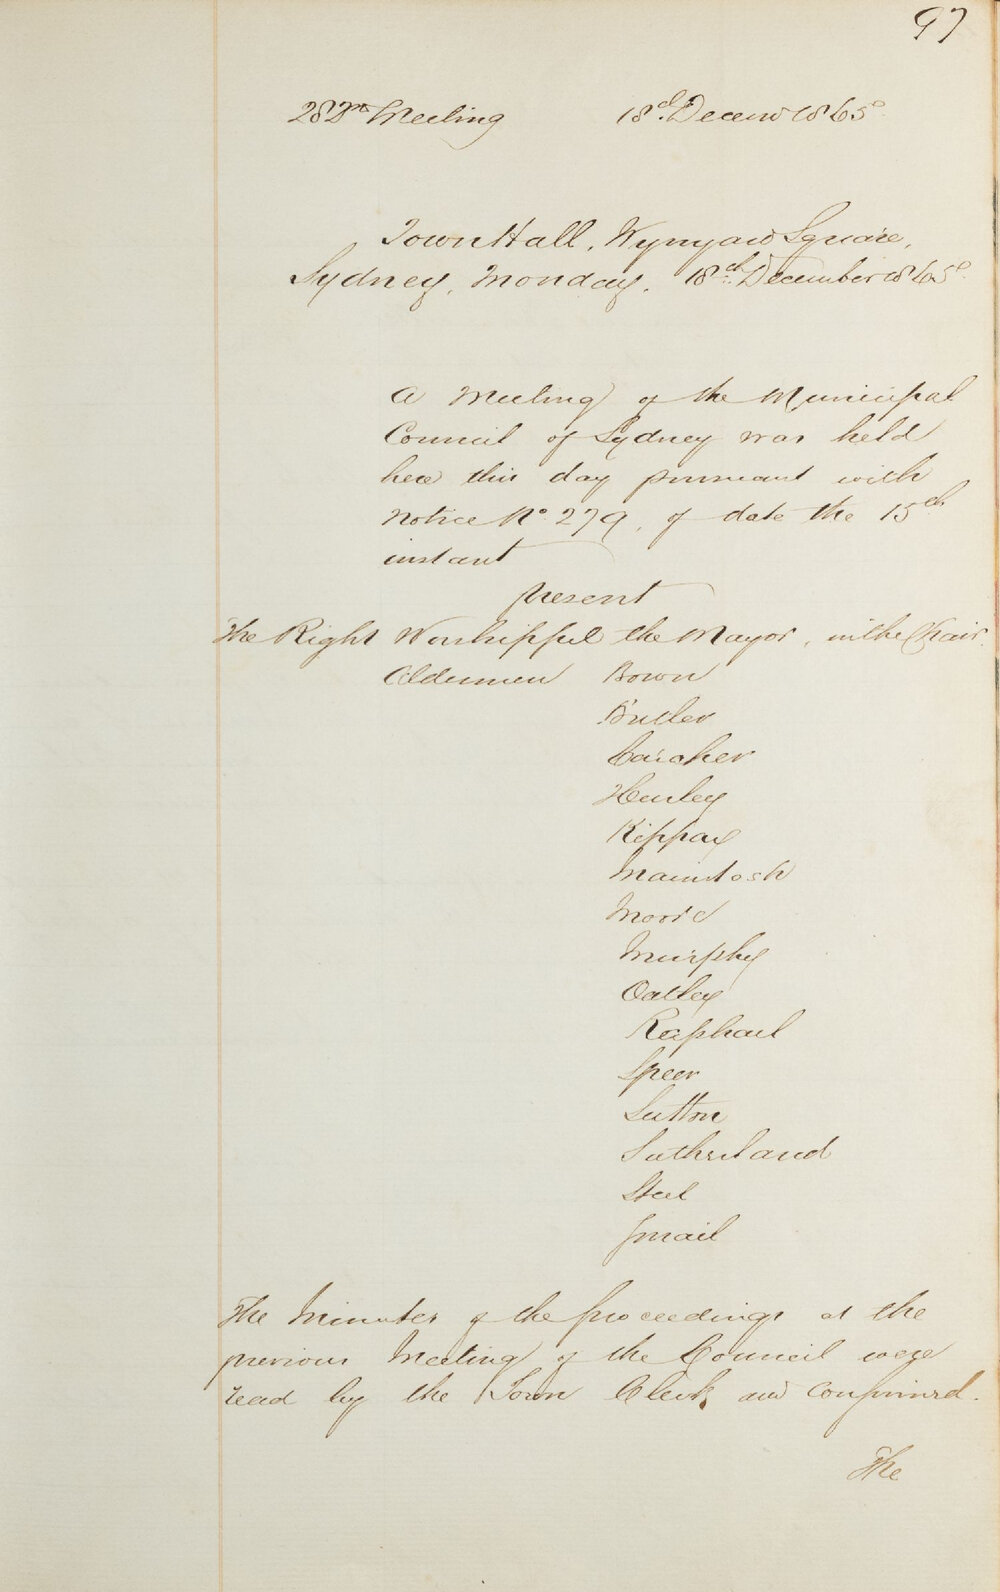 97
282nd Meeting 18th Decem 1865
Town Hall, Wynyard Square,
Sydney, Monday, 18th December 1865
A Meeting of the Municipal
Council of Sydney was held
here this day pursuant with
notice No. 279, of date the 15th
instant
present
The Right Worshipful the Mayor, in the Chair.
Aldermen Bown
Butler
Caraher
Hurley
Kippax
Macintosh
Moore
Murphy
Oatley
Raphael
Speer
Sutton
Sutherland
Steel
Smail
The Minutes of the proceedings at the
previous Meeting of the Council were
read by the Town Clerk and confirmed.
The